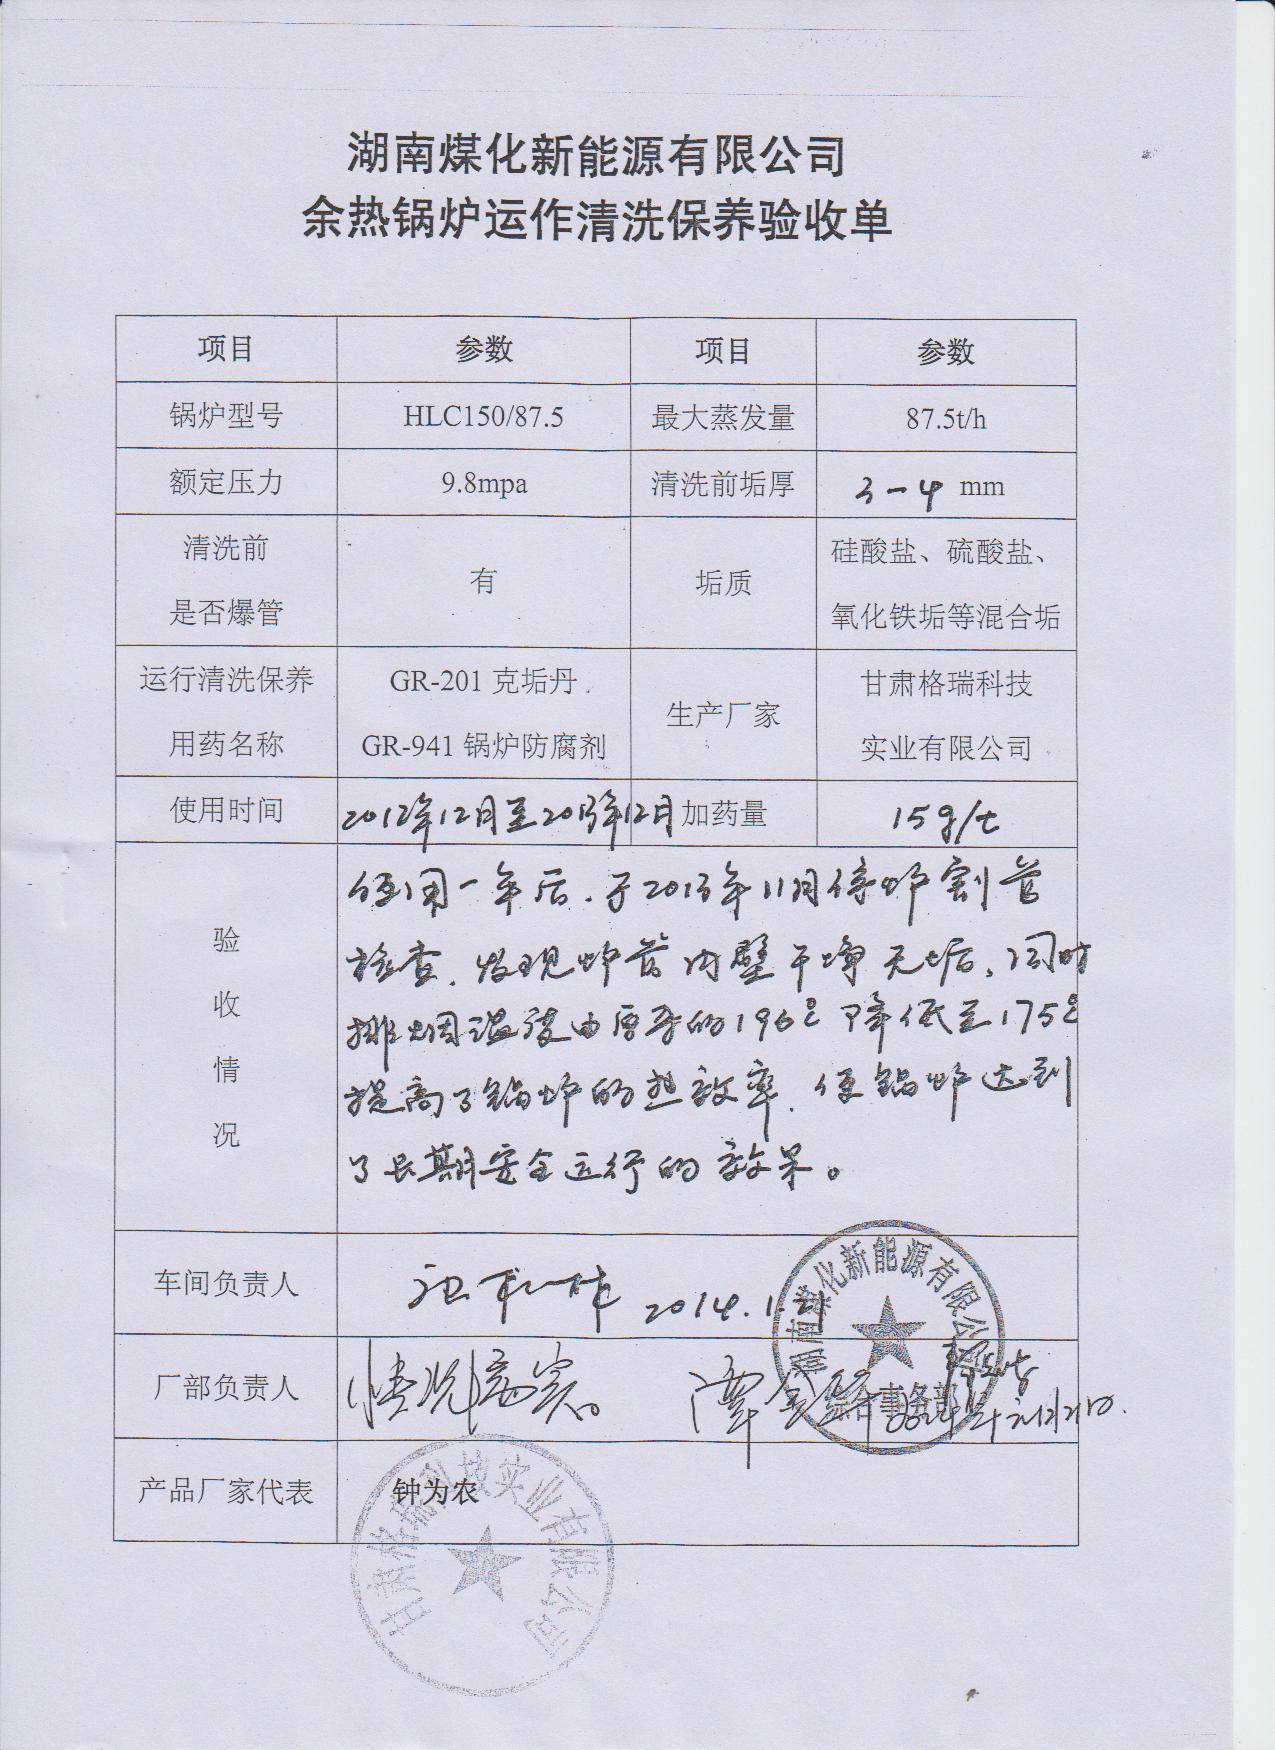 湖南煤化新能源有限公司
余热锅炉运作清洗保养验收单
项目 参数 项目 参数
锅炉型号 HLC150/87.5 最大蒸发量 87.5t/h
额定压力 9.8mpa 清洗前垢厚 3-4 mm
清洗前
是否爆管
有
垢质
硅酸盐、硫酸盐、
氧化铁垢等混合垢
运行清洗保养
用药名称
GR-201克垢丹
GR-941锅炉防腐剂
生产厂家
甘肃格瑞科技
实业有限公司
使用时间 2012年12月至2013年12月 加药量 15g/t
验收情况
使用一年后.于2013年11月停炉割管
检查,发现炉管内壁干净无垢,同时
排烟温度由原来的196℃降低至175℃
提高了锅炉的热效率,使锅炉达到
了长期安全运行的效果。
车间负责人 2014.1.21
厂部负责人 情况属实。
产品厂家代表 钟为农
湖南煤化新能源有限公司
综合事务部
甘肃格瑞科技实业有限公司